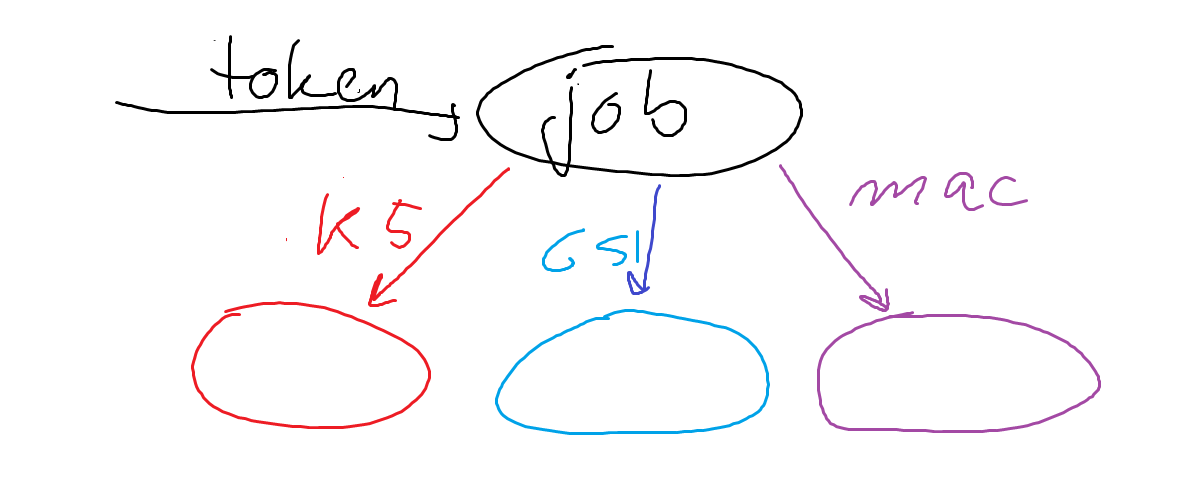 token
job
K5
GSI
mac